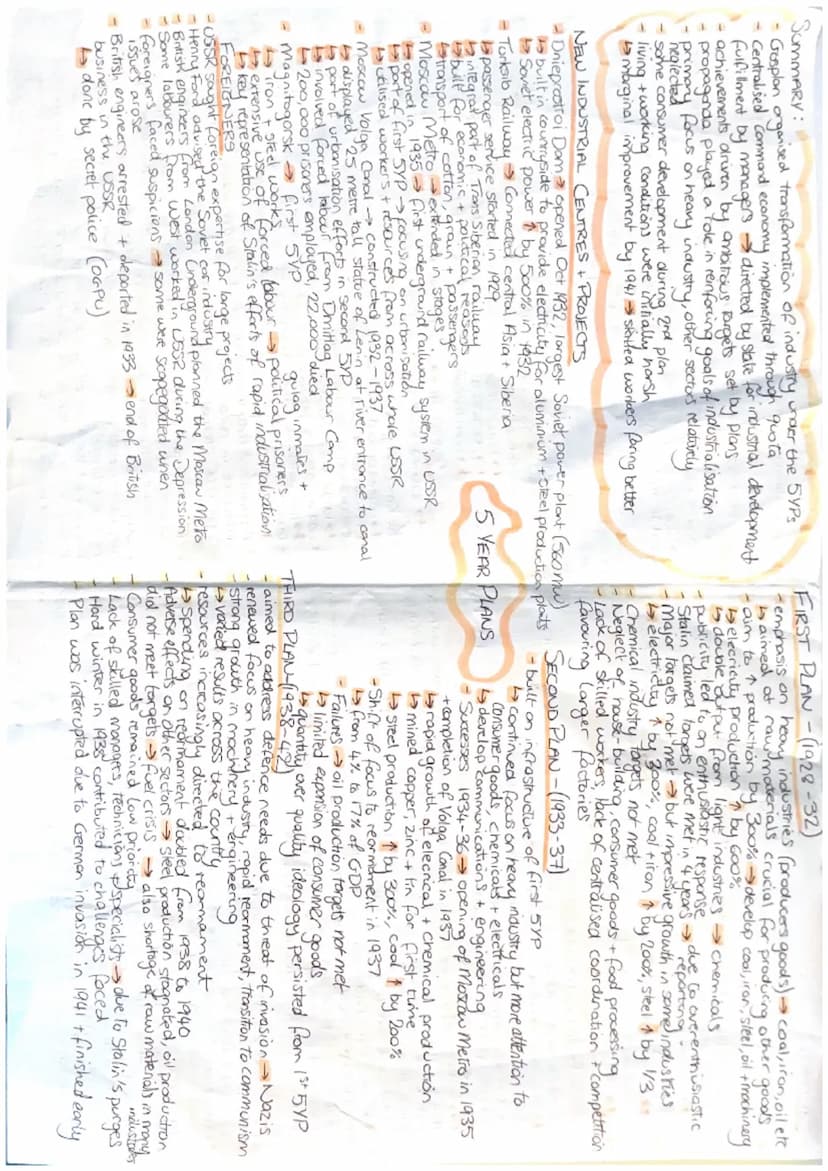 SUMMARY:
- Gosplan organised transformation of industry under the 5YPs
- Centralised command economy implemented through quota
fulfillment by managers → directed by state for industrial development
- achievements driven by ambitious targets set by plans
- propaganda played a role in reinforcing goals of industrialisation
- primary focus on heavy industry, other sectors relatively
neglected
- some consumer development during 2nd plan
- living + working conditions were initially harsh
↳ marginal improvement by 1941 → skilled workers faring better
NEW INDUSTRIAL CENTRES + PROJECTS
- Dnieprostroi Dam → opened Oct 1932, largest Soviet power plant (560MW)
↳ built in countryside to provide electricity for aluminium + steel production plants
↳ Soviet electric power ↑ by 500% in 1932
- Turksib Railway → connected central Asia + Siberia
↳ passenger service started in 1929
↳ integral part of Trans Siberian railway
↳ built for economic + political reasons
↳ transport of cotton, grain + passengers
- Moscow Metro → extended in stages
↳ opened in 1935 → first underground railway system in USSR
↳ part of first 5YP → focusing on urbanisation
↳ utilised workers + resources from across whole USSR
- Moscow Volga Canal → constructed 1932-1937
↳ displayed 25 metre tall statue of Lenin at river entrance to canal
↳ part of urbanisation efforts in second 5YP
↳ involved forced labour from Dmitlag Labour Camp
↳ 200,000 prisoners employed, 22,000 died
- Magnitogorsk → first 5YP
↳ iron + steel works
↳ extensive use of forced labour → political prisoners
gulag inmates +
↳ key representation of Stalin's efforts of rapid industrialisation
FOREIGNERS
- USSR sought foreign expertise for large projects
- Henry Ford advised the Soviet car industry
- British engineers from London Underground planned the Moscow Metro
- Some labourers from West worked in USSR during the Depression
- Foreigners faced suspicions → some were scapegoated when
issues arose
- British engineers arrested + deported in 1933 → end of British
business in the USSR
↳ done by secret police (OGPU)
5 YEAR PLANS
FIRST PLAN - (1928-32)
- emphasis on heavy industries (producers goods) → coal, iron, oil etc
↳ aimed at raw materials crucial for producing other goods
- aim to ↑ production by 300% → develop coal, iron, steel, oil + machinery
↳ electricity production ↑ by 600%
↳ double output from light industries → chemicals
- publicity led to an enthusiastic response
- Stalin claimed targets were met in 4 years → due to overenthusiastic
reporting
- Major targets not met → but impressive growth in some industries
↳ electricity ↑ by 300%, coal + iron ↑ by 200%, steel ↑ by 1/3
- Chemical industry targets not met
- Neglect of house-building, consumer goods + food processing
- Lack of skilled workers, lack of centralised coordination + competition
favouring larger factories
SECOND PLAN - (1933-37)
- built on infrastructure of first 5YP
↳ continued focus on heavy industry but more attention to
consumer goods, chemicals + electricals
↳ develop communications + engineering
- Successes 1934-36 → opening of Moscow Metro in 1935
+ completion of Volga Canal in 1937
↳ rapid growth of electrical + chemical production
↳ mined copper, zinc + tin for first time
↳ steel production ↑ by 300%, coal ↑ by 200%
- Shift of focus to rearmament in 1937
↳ from 4% to 17% of GDP
- Failures → oil production targets not met
↳ limited expansion of consumer goods
↳ quantity over quality ideology persisted from 1st 5YP
THIRD PLAN - (1938-42)
- aimed to address defence needs due to threat of invasion → Nazis
- renewed focus on heavy industry, rapid rearmament, transition to communism
- strong growth in machinery + engineering
↳ varied results across the country
- resources increasingly directed to rearmament
↳ spending on rearmament doubled from 1938 to 1940
- Adverse effects on other sectors → steel production stagnated, oil production
did not meet targets → fuel crisis → also shortage of raw materials in many
industries
- Consumer goods remained low priority
- Lack of skilled managers, technicians + specialists → due to Stalin's purges
- Hard winter in 1938 contributed to challenges faced
- Plan was interrupted due to German invasion in 1941 + finished early